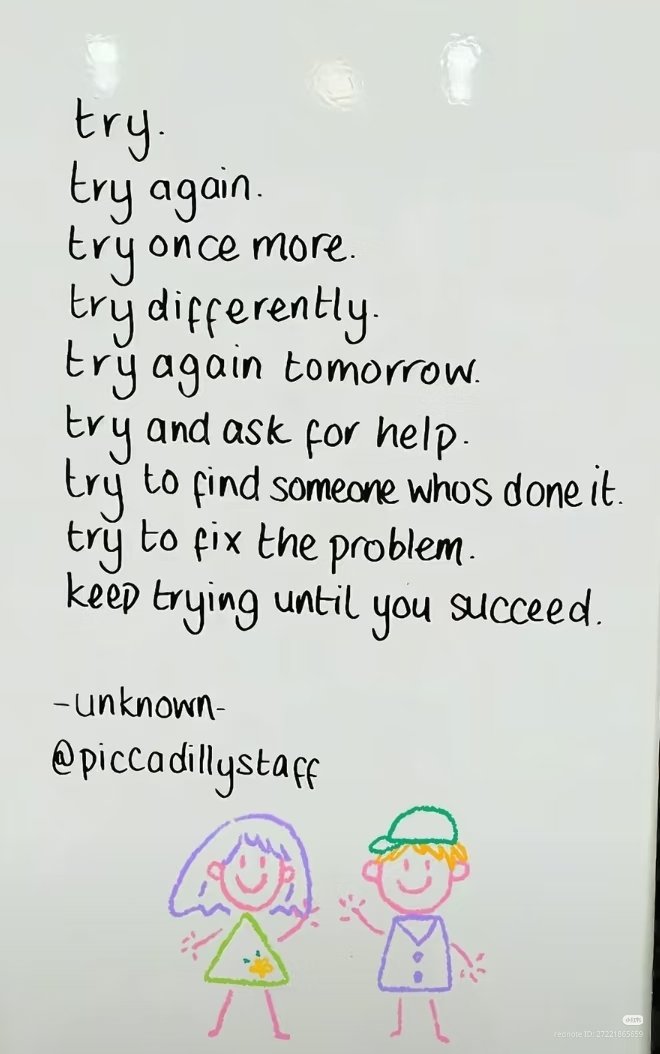 try.
try again.
try once more.
try differently.
try again tomorrow.
try and ask for help.
try to find someone whos done it.
try to fix the problem.
keep trying until you succeed.
-unknown-
@piccadillystaff
小红书
rednote ID: 27221865659